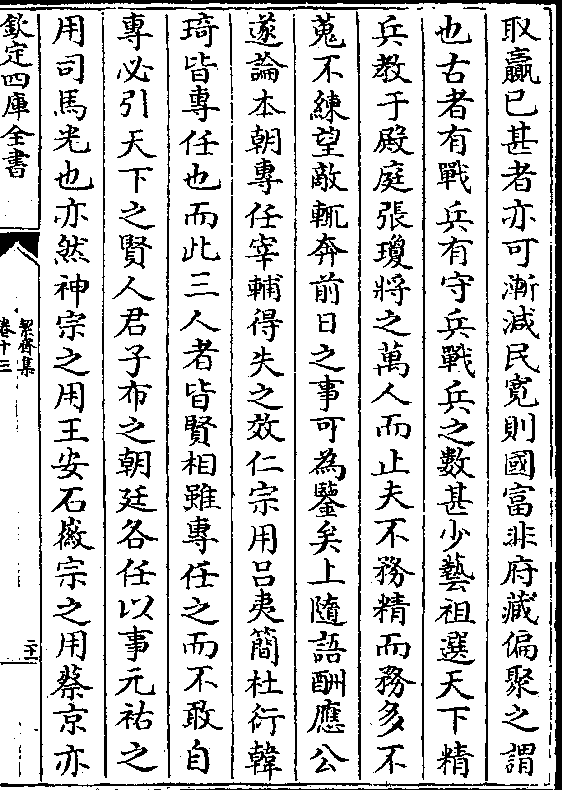 取羸已甚者亦可漸減民寛則國富非府藏偏聚之謂
也古者有戰兵有守兵戰兵之數甚少藝祖選天下精
兵教于殿庭張瓊將之萬人而止夫不務精而務多不
蒐不練望敵輒奔前日之事可為鑒矣上隨語酬應公
遂論本朝專任宰輔得失之效仁宗用吕夷簡杜衍韓
琦皆專任也而此三人者皆賢相雖專任之而不敢自
專必引天下之賢人君子布之朝廷各任以事元祐之
用司馬光也亦然神宗之用王安石徽宗之用蔡京亦
欽定四庫全書
絜齋集
卷十三